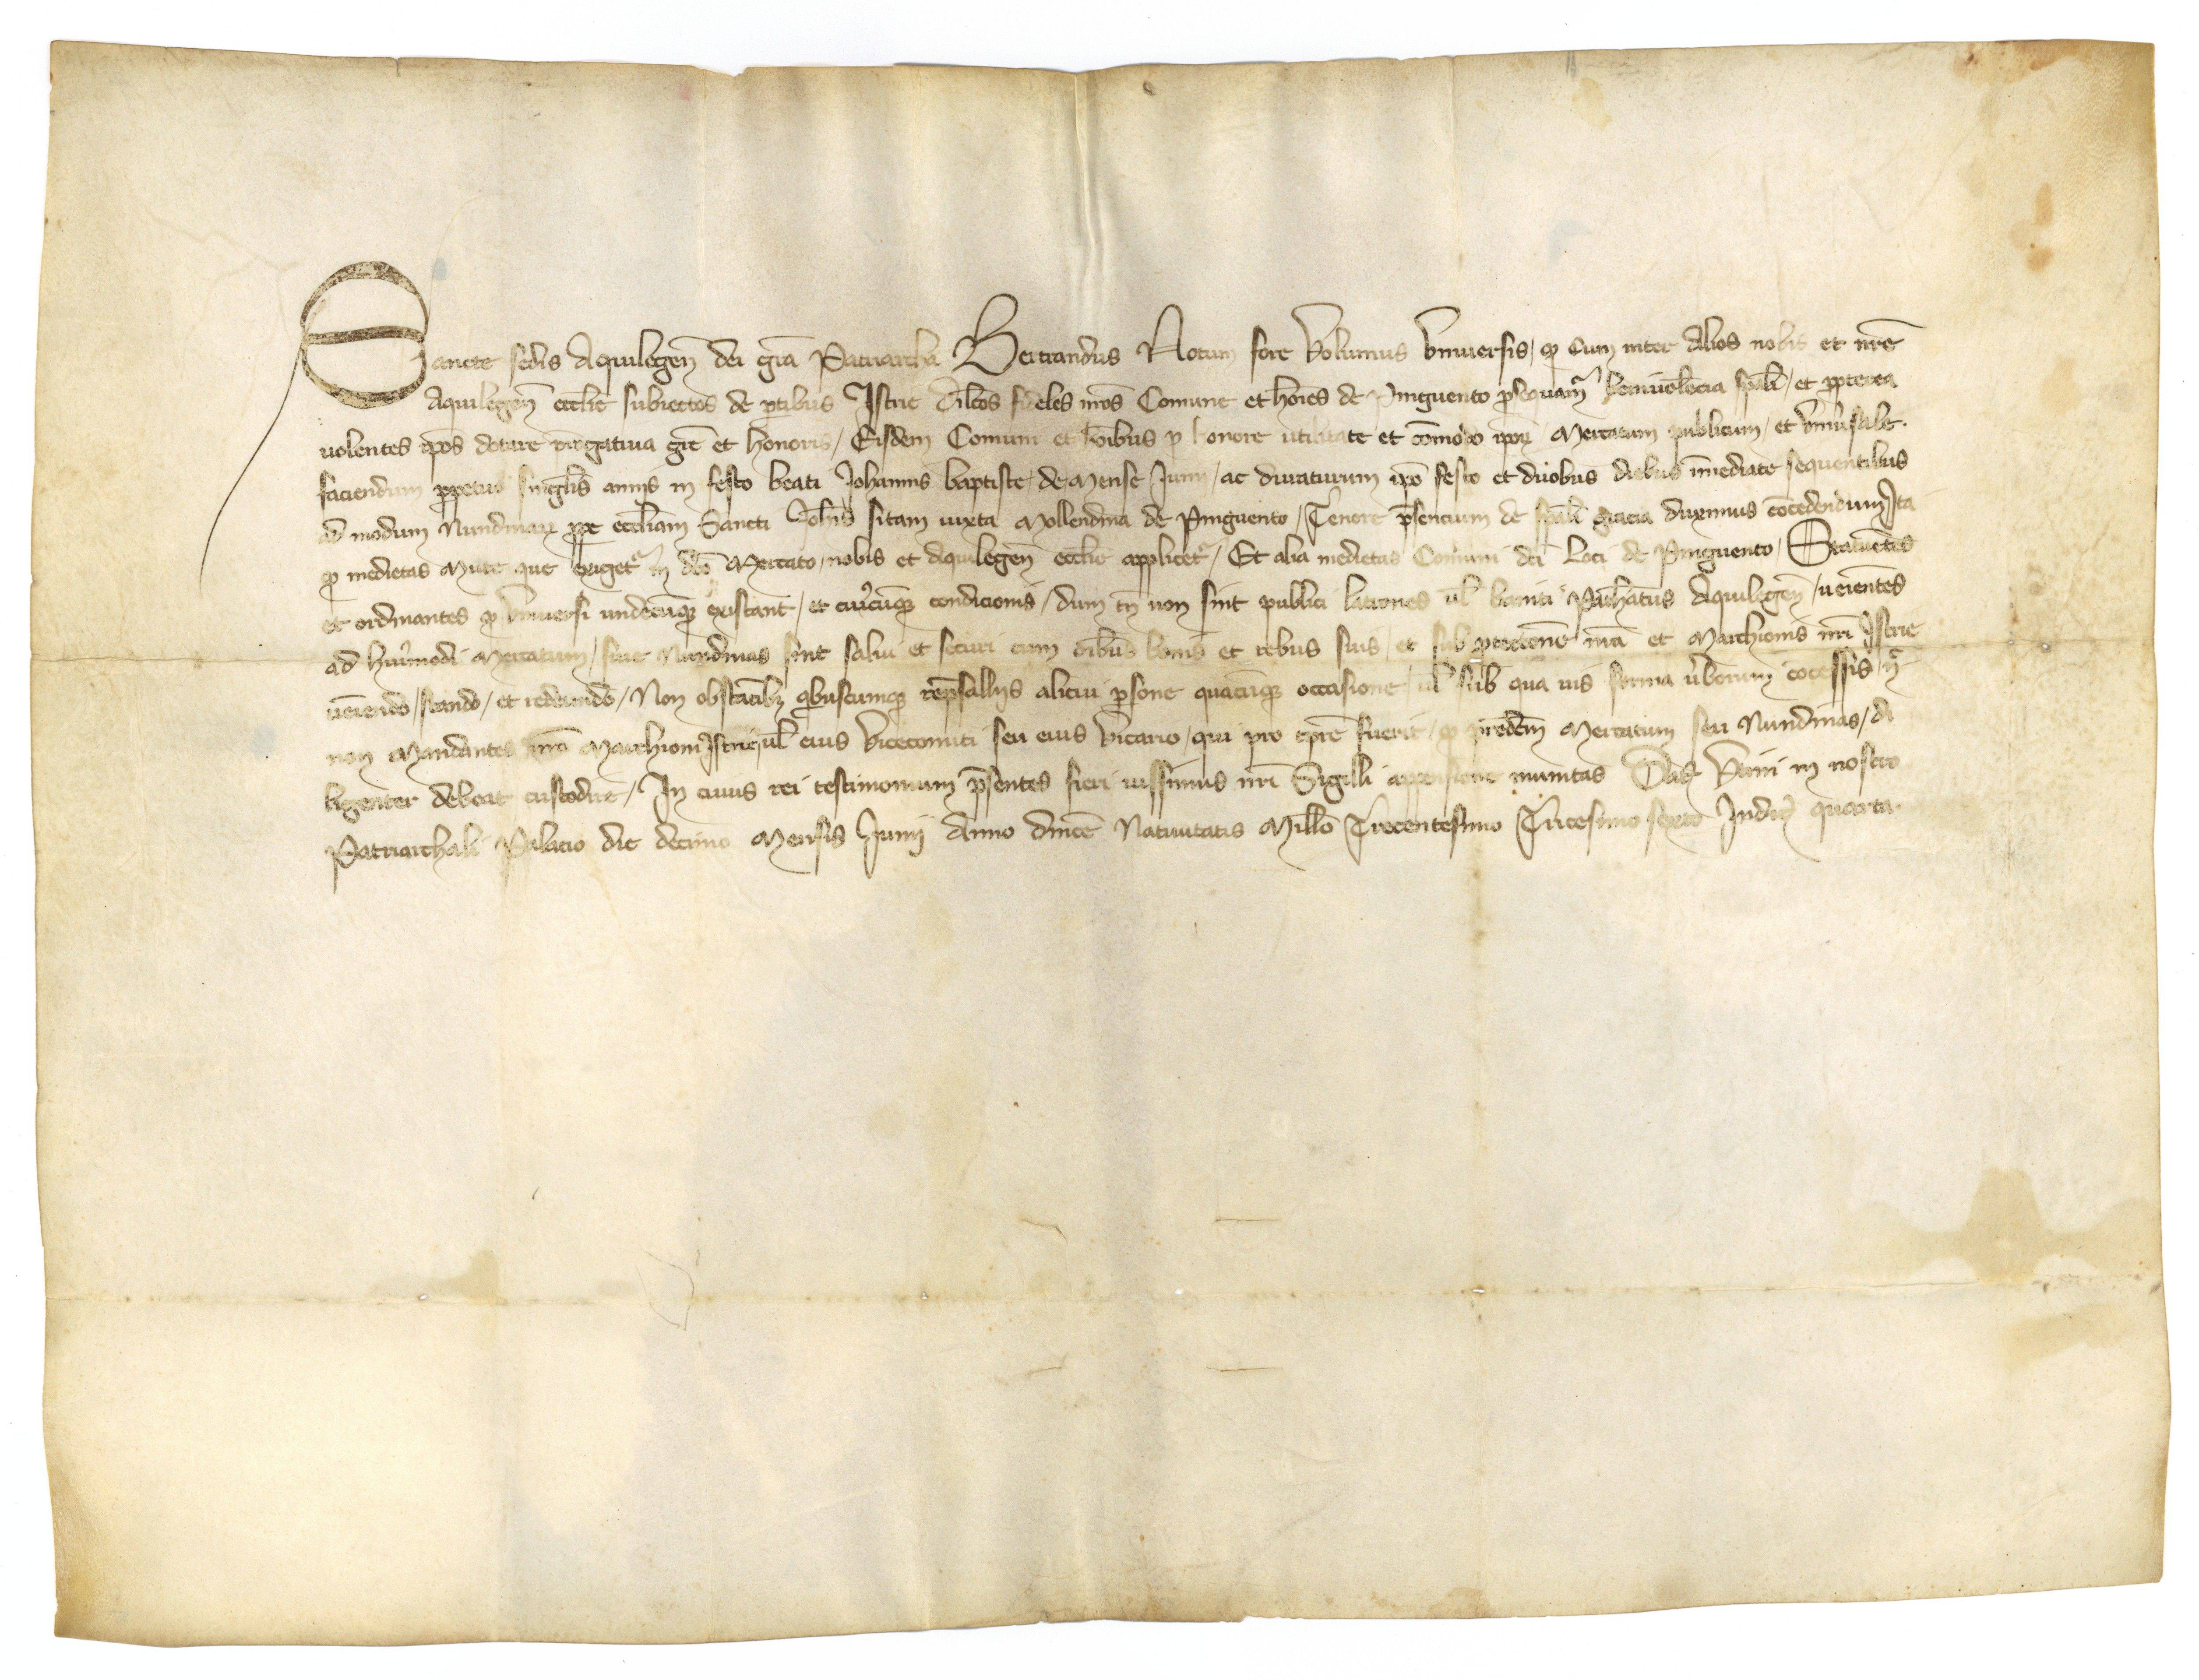 Sancte sedis Aquilegen̄ dei gr̄a Patriarcha Bertrandus Notum fore Volumus Vniuersis, ꝙ Cum inter Alios nobis et nr̄e
Aquilegen̄ eccl̄ie subiectos de ꝑtibus Istrie dil̄cos fideles nr̄os Comune et hoīes de Pinguento ꝓsequamr̉ beniuol̄ecia sp̄ali / et ꝓpterea
uolentes ip̄os dotare p̄rogatiua gr̄e et honoris / Eisdem Comuni et hōibus ꝓ honore utilitate et cōmodo ip̄oꝝ Mercatum publicum / et Vniu̓sale.
faciendum ꝑpetuo singl̄is annis in festo beati Johannis baptiste de Mense Junij / ac duraturum ip̄o festo et duobus diebus īmediate sequentibus
ad modum Nundinaꝝ ꝓpe eccl̄iam Sancti Joh̄is sitam iuxta Mollendina de Pinguento / Tenore p̄sencium de sp̄ali gracia duximus cōcedendum Ita
ꝙ medietas Mute que exiget̉ in dc̄o Mercato / nobis et Aquilegen̄ eccl̄ie applicet̉ / Et alia medietas Comuni dc̄i Loci de Pinguento / Statuētes
et ordinantes ꝙ Vniuersi undecūqꝫ existant / et cuiu̓cūqꝫ condicionis / dum tn̄ non sint publici latrones ul̄ baniti Pat̄hatus Aquilegen̄ / ueiēntes
ad huiu̓modi Mercatum / siue Nundinas sint salui et securi cum oībus bonis et rebus suis / et sub ꝓtectōne nr̄a et Marchionis nr̄i Istrie
ueiēndo / stando / et redeundo / Non obstātibꝫ qͥbuscumqꝫ rep̄sallijs alicui ꝑsone quacūqꝫ occasione / ul̄ sub qua uis forma u̓borum cōcessis / n̄
non Mandantes nr̄o Marchioni Istrie ul̄ eius Vicecomiti seu eius Vicario / qui pro tp̄re fuerit / ꝙ pred̄cm Mercatum seu Nundinas / di
ligenter debeat custodire / In cuius rei testimonium p̄sentes fieri iussimus nr̄i Sigilli appensione munitas Dat̄ Vtini in nostro
Patriarchali Palacio die decimo Mensis Junij Anno dn̄ice Natiuitatis Mill̄o Trecentesimo Tricesimo sexto Indict̄ quarta.